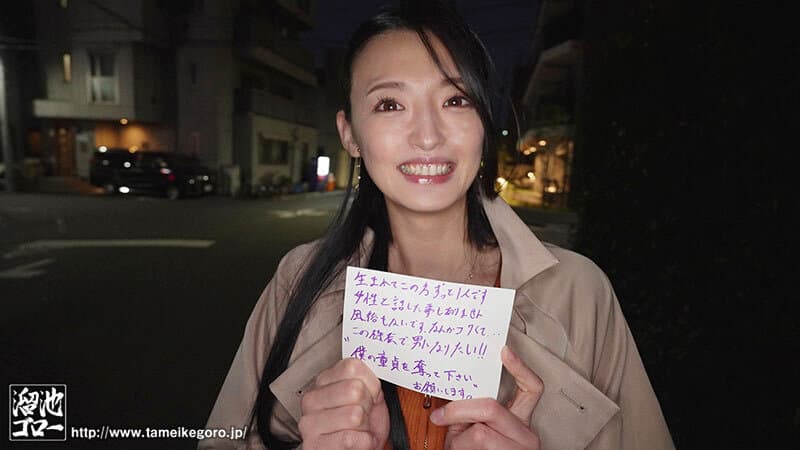 生まれてこの方ずっと1人です
女性と話した事しありません
風俗もないです。なんかコワくて...
この機会で男になりたい!!
"僕の童貞を奪って下さい"
お願いします。
溜池
ゴロー
http://www.tameikegoro.jp/